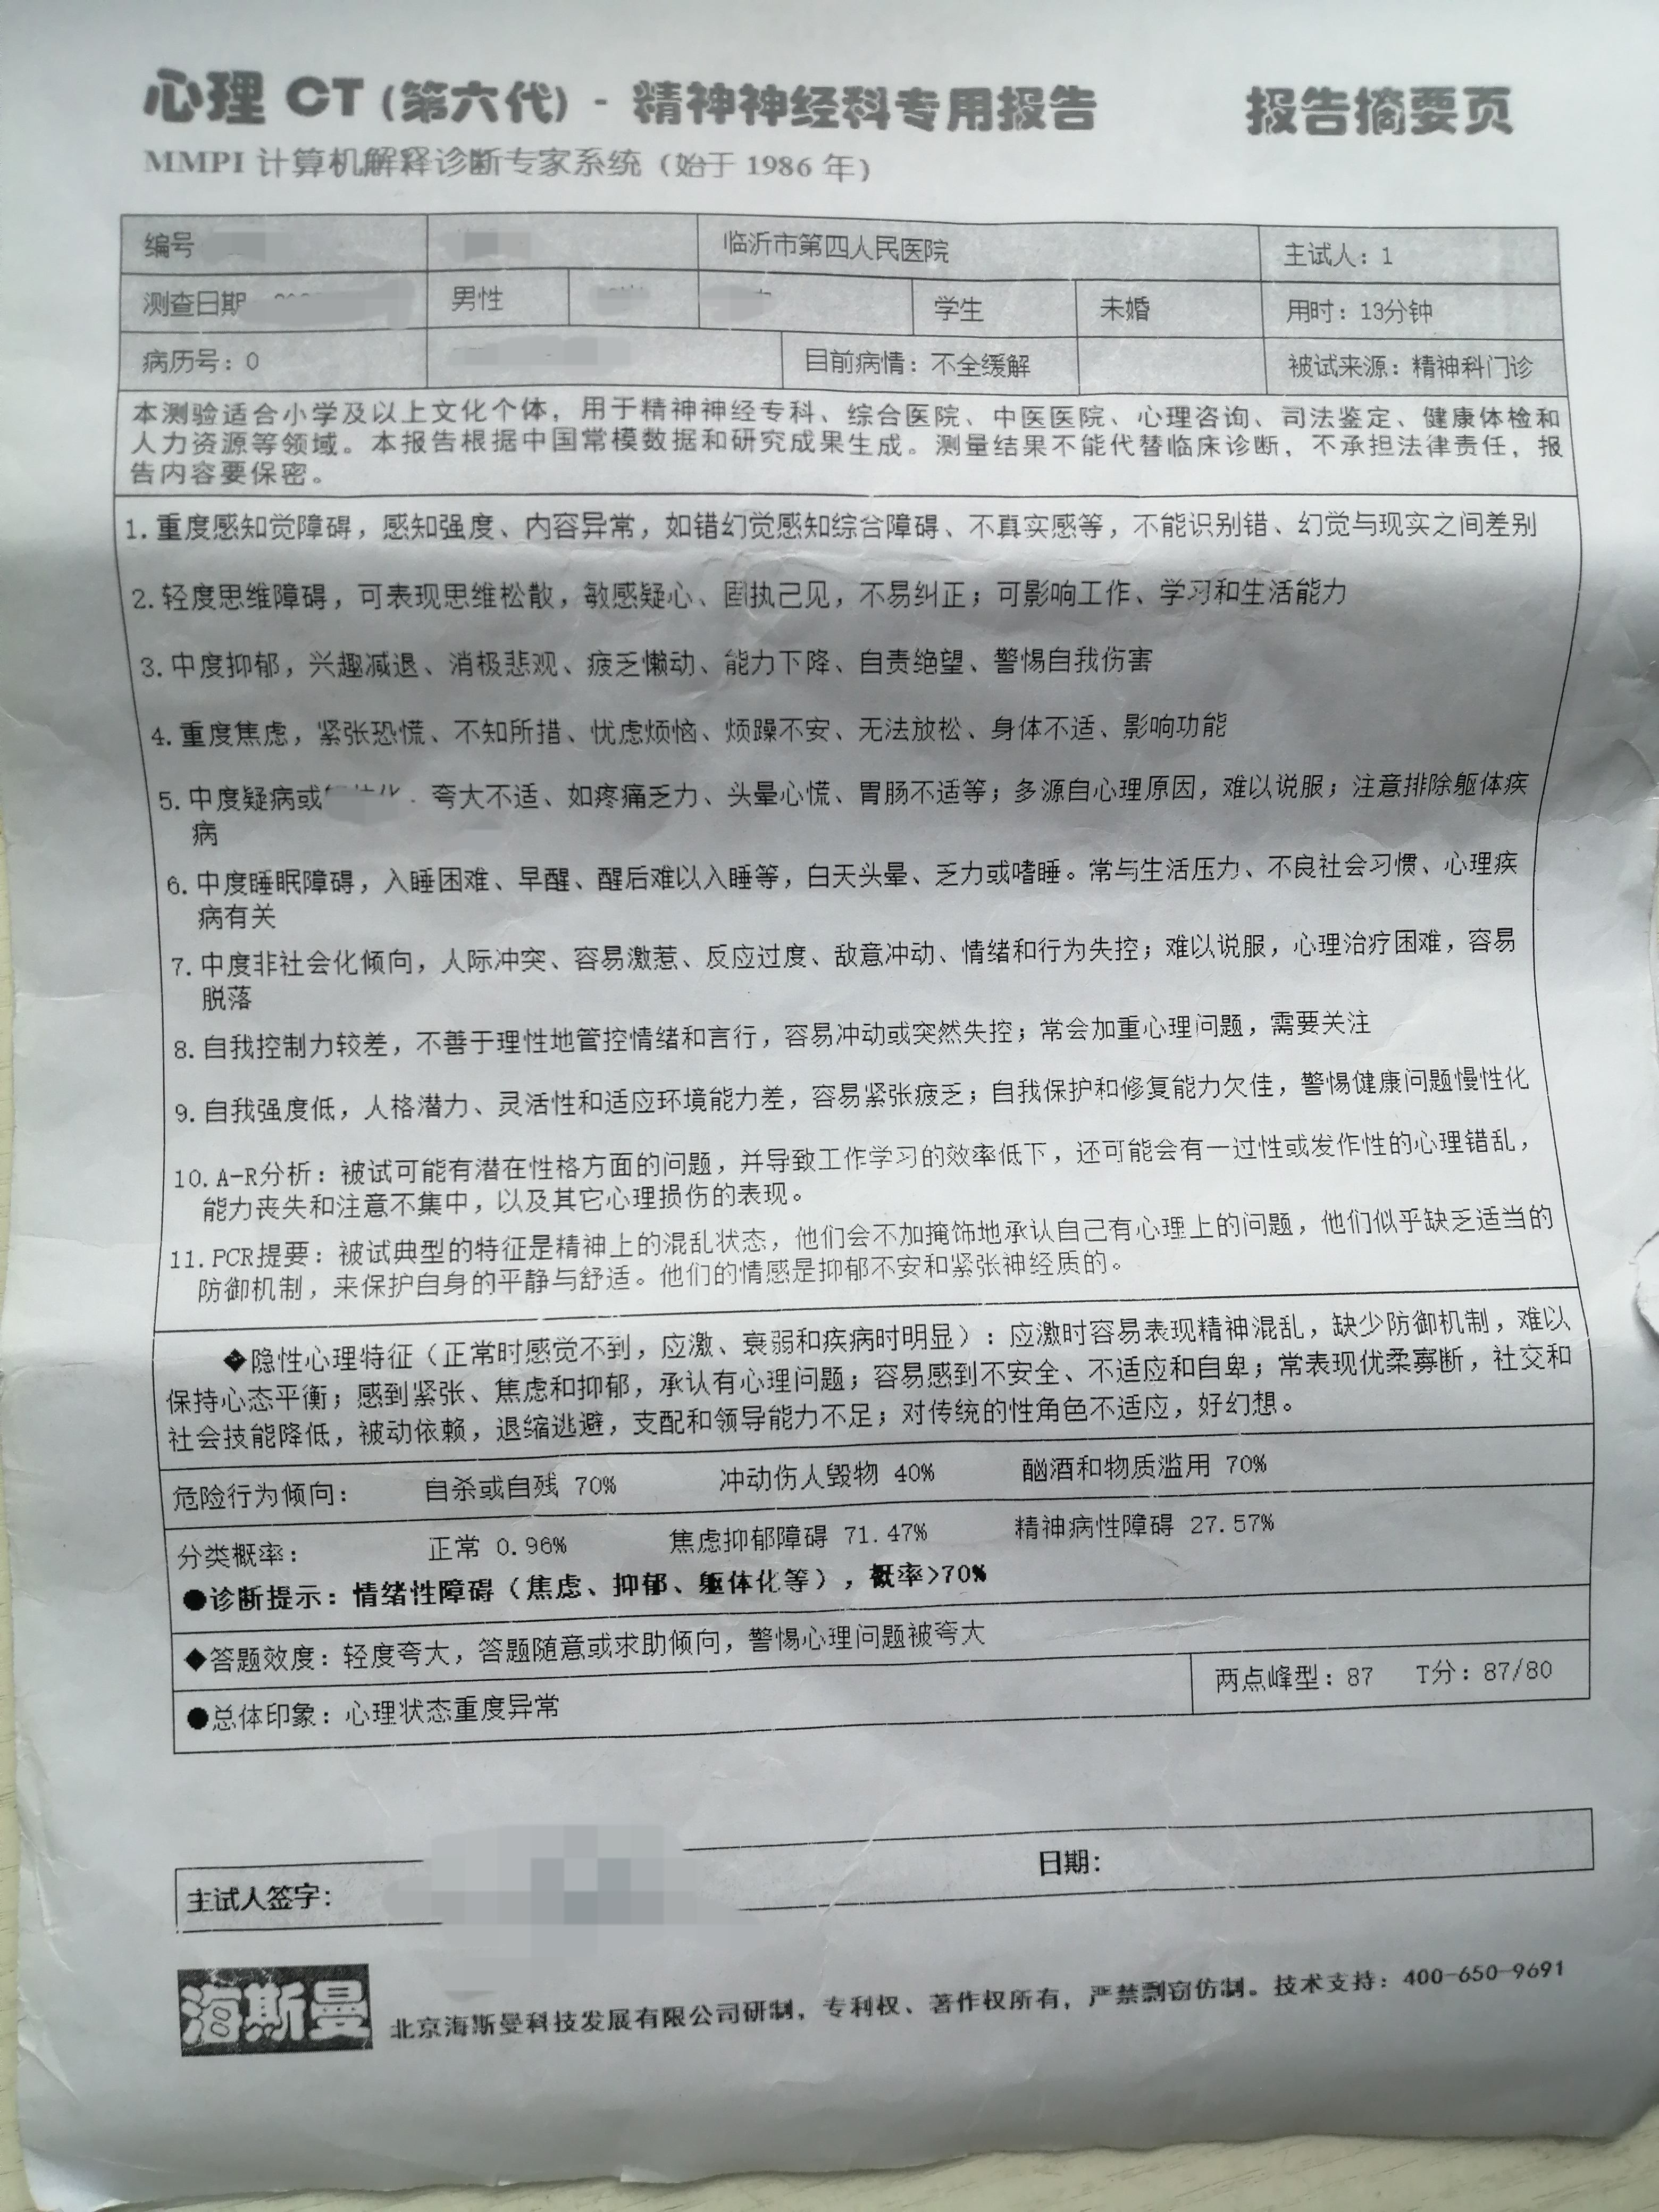 心理 CT (第六代) - 精神神经科专用报告 报告摘要页
MMPI 计算机解释诊断专家系统（始于 1986 年）
编号 临沂市第四人民医院 主试人：1
测查日期 男性 学生 未婚 用时：13分钟
病历号：0 目前病情：不全缓解 被试来源：精神科门诊
本测验适合小学及以上文化个体，用于精神神经专科、综合医院、中医医院、心理咨询、司法鉴定、健康体检和
人力资源等领域。本报告根据中国常模数据和研究成果生成。测量结果不能代替临床诊断，不承担法律责任，报
告内容要保密。
1. 重度感知觉障碍，感知强度、内容异常，如错幻觉感知综合障碍、不真实感等，不能识别错、幻觉与现实之间差别
2. 轻度思维障碍，可表现思维松散，敏感疑心、固执己见，不易纠正；可影响工作、学习和生活能力
3. 中度抑郁，兴趣减退、消极悲观、疲乏懒动、能力下降、自责绝望、警惕自我伤害
4. 重度焦虑，紧张恐慌、不知所措、忧虑烦恼、烦躁不安、无法放松、身体不适、影响功能
5. 中度疑病或 夸大不适、如疼痛乏力、头晕心慌、胃肠不适等；多源自心理原因，难以说服；注意排除躯体疾
病
6. 中度睡眠障碍，入睡困难、早醒、醒后难以入睡等，白天头晕、乏力或嗜睡。常与生活压力、不良社会习惯、心理疾
病有关
7. 中度非社会化倾向，人际冲突、容易激惹、反应过度、敌意冲动、情绪和行为失控；难以说服，心理治疗困难，容易
脱落
8. 自我控制力较差，不善于理性地管控情绪和言行，容易冲动或突然失控；常会加重心理问题，需要关注
9. 自我强度低，人格潜力、灵活性和适应环境能力差，容易紧张疲乏；自我保护和修复能力欠佳，警惕健康问题慢性化
10. A-R分析：被试可能有潜在性格方面的问题，并导致工作学习的效率低下，还可能会有一过性或发作性的心理错乱，
能力丧失和注意不集中，以及其它心理损伤的表现。
11. PCR提要：被试典型的特征是精神上的混乱状态，他们会不加掩饰地承认自己有心理上的问题，他们似乎缺乏适当的
防御机制，来保护自身的平静与舒适。他们的情感是抑郁不安和紧张神经质的。
◆隐性心理特征（正常时感觉不到，应激、衰弱和疾病时明显）：应激时容易表现精神混乱，缺少防御机制，难以
保持心态平衡；感到紧张、焦虑和抑郁，承认有心理问题；容易感到不安全、不适应和自卑；常表现优柔寡断，社交和
社会技能降低，被动依赖，退缩逃避，支配和领导能力不足；对传统的性角色不适应，好幻想。
危险行为倾向： 自杀或自残 70% 冲动伤人毁物 40% 酗酒和物质滥用 70%
分类概率： 正常 0.96% 焦虑抑郁障碍 71.47% 精神病性障碍 27.57%
●诊断提示：情绪性障碍（焦虑、抑郁、躯体化等），概率>70%
◆答题效度：轻度夸大，答题随意或求助倾向，警惕心理问题被夸大
●总体印象：心理状态重度异常 两点峰型：87 T分：87/80
主试人签字： 日期：
海斯曼 北京海斯曼科技发展有限公司研制，专利权、著作权所有，严禁剽窃仿制。技术支持：400-650-9691